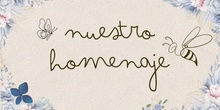 nuestro
homenaje